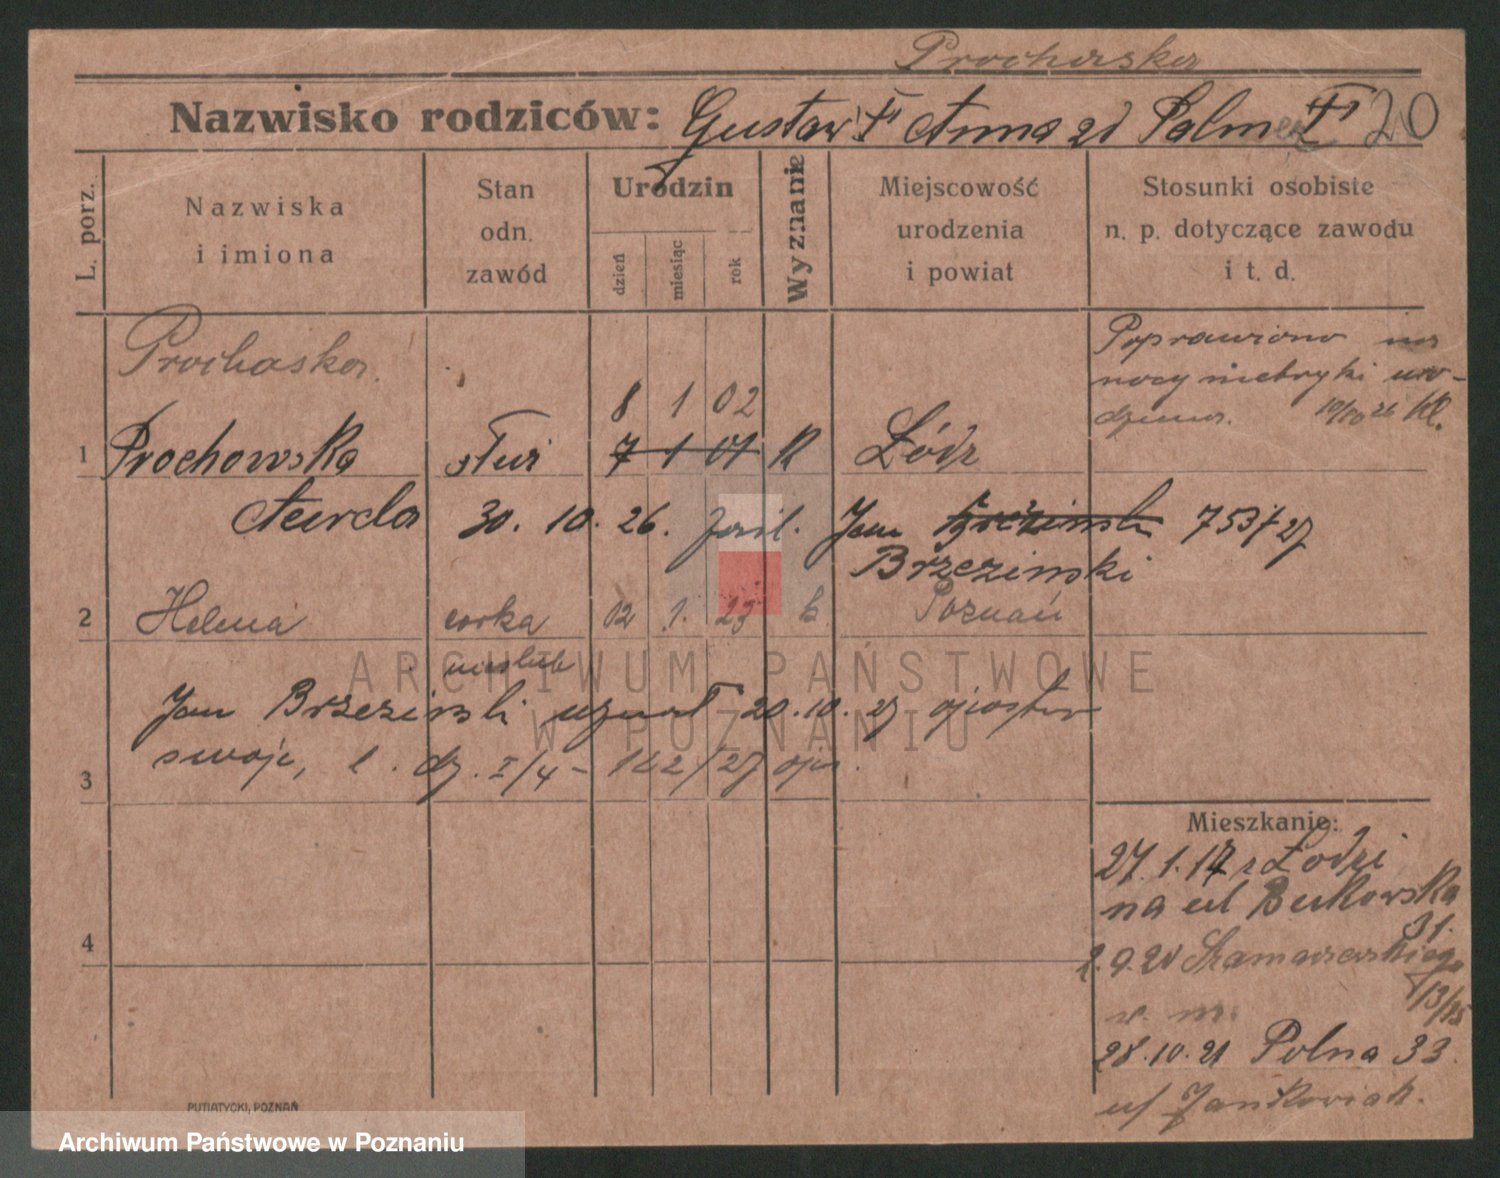 Prochaska
Nazwisko rodziców: Gustaw † Anna zd Palm † 20
L. porz.
Nazwiska
i imiona
Stan
odn.
zawód
Urodzin
dzień
miesiąc
rok
Wyznanie
Miejscowość
urodzenia
i powiat
Stosunki osobiste
n. p. dotyczące zawodu
i t. d.
Prochaska
Poprawiono na
mocy metryki uro-
dzenia. 19/10 26 Kl.
8 1 02
1 Prochowska służ 7 1 01 K Łódź
30. 10. 26. Jan Brzezinski 753/27
Brzezinski
2 Helena corka 12 1. 23 k Poznań
nieślub
Jan Brzezinski uznał 20.10.27 ojcostwo
swoje, l. dz. I/4 - 162/27
3
Mieszkanie:
27.1.17 z Łodzi
na ul Bukowska
31.
2.9.20 Szamarzewskiego
13/15
w. m.
28.10.21 Polna 33.
u/ Jankowiak.
4
PUTIATYCKI, POZNAŃ
ARCHIWUM PAŃSTWOWE
W POZNANIU
Archiwum Państwowe w Poznaniu